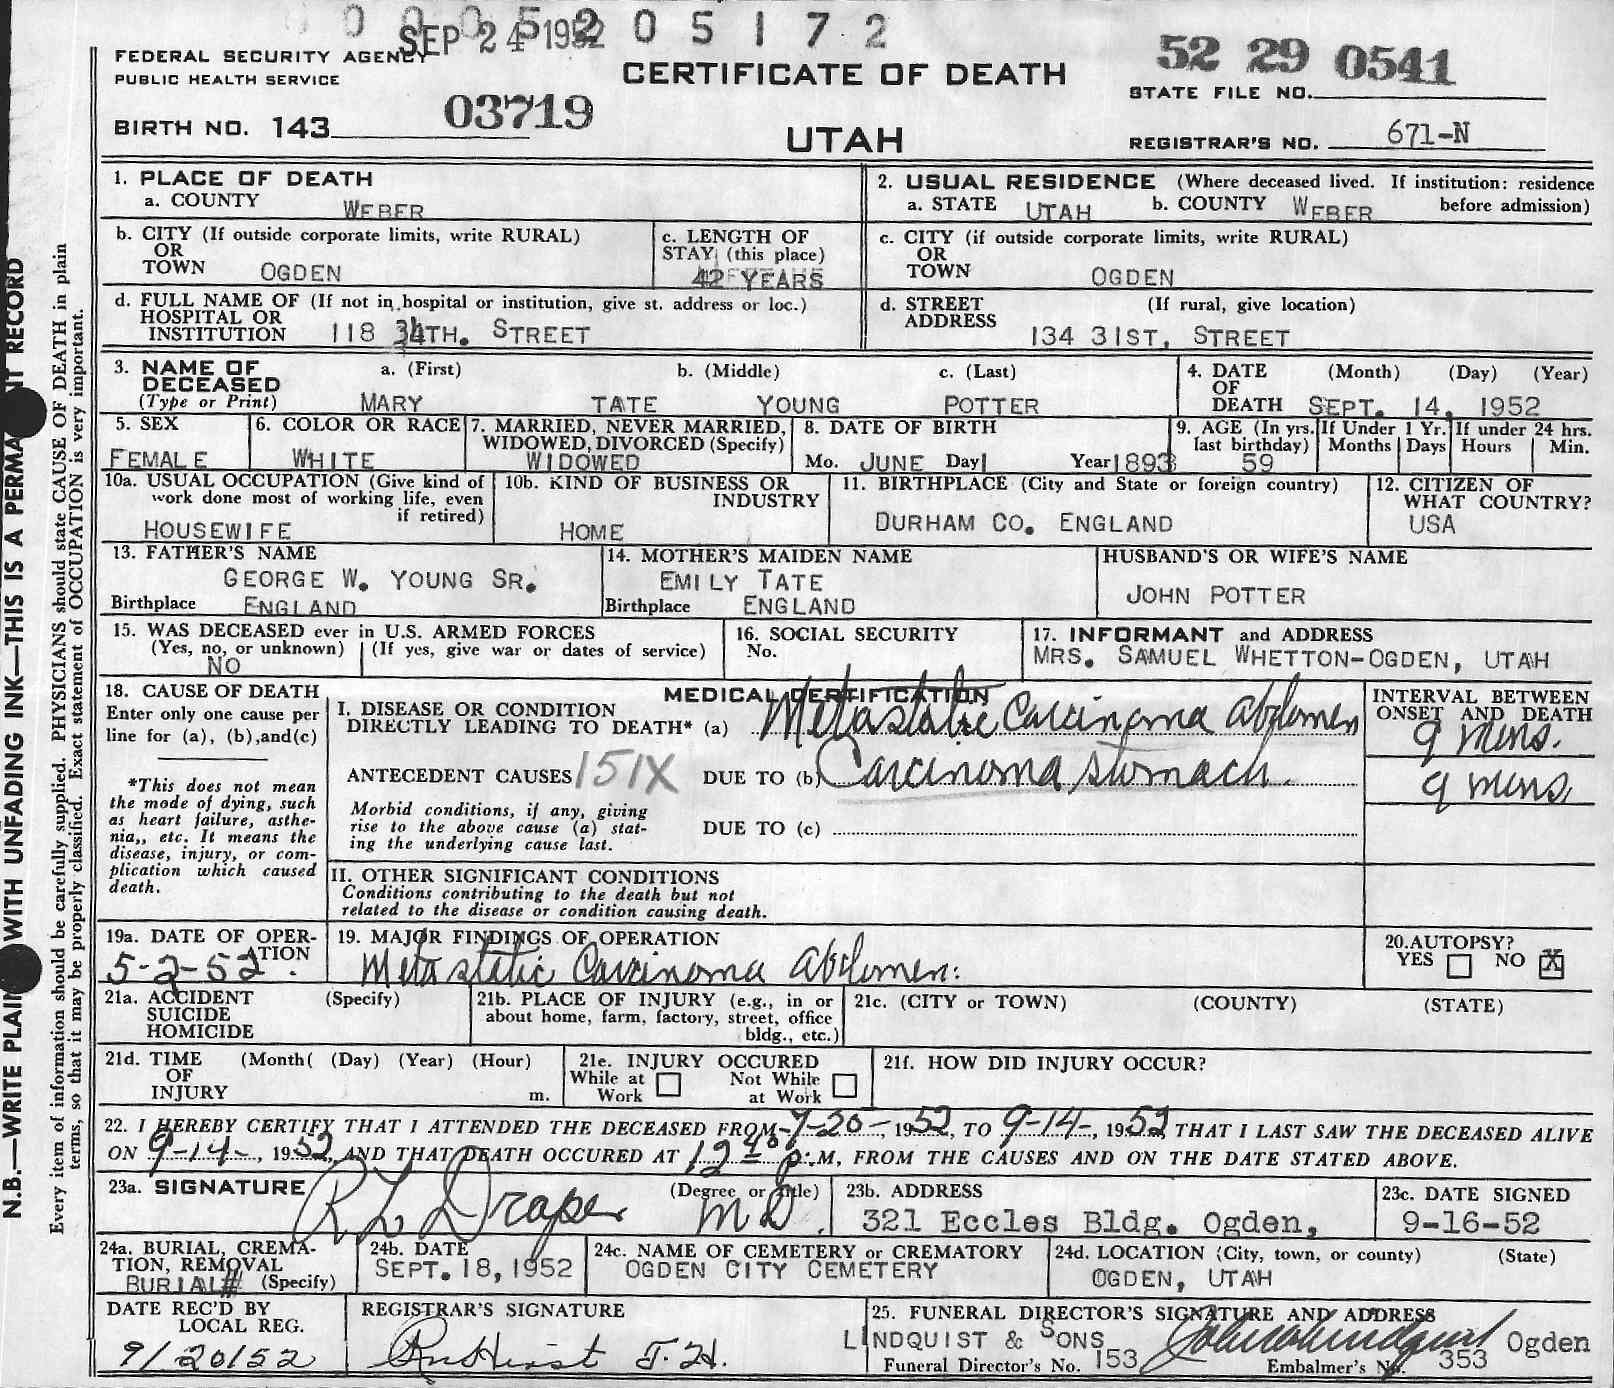 SEP 24 1952 0 5 1 7 2
FEDERAL SECURITY AGENCY
PUBLIC HEALTH SERVICE
CERTIFICATE OF DEATH
52 29 0541
STATE FILE NO.
BIRTH NO. 143 03719
UTAH
REGISTRAR'S NO. 671-N
N.B.—WRITE PLAIN WITH UNFADING INK—THIS IS A PERMA NT RECORD
Every item of information should be carefully supplied. PHYSICIANS should state CAUSE OF DEATH in plain
terms, so that it may be properly classified. Exact statement of OCCUPATION is very important.
1. PLACE OF DEATH
a. COUNTY WEBER
2. USUAL RESIDENCE (Where deceased lived. If institution: residence
a. STATE UTAH b. COUNTY WEBER before admission)
b. CITY (If outside corporate limits, write RURAL)
OR
TOWN OGDEN
c. LENGTH OF
STAY (this place)
42 YEARS
c. CITY (if outside corporate limits, write RURAL)
OR
TOWN OGDEN
d. FULL NAME OF (If not in hospital or institution, give st. address or loc.)
HOSPITAL OR
INSTITUTION 118 34TH. STREET
d. STREET (If rural, give location)
ADDRESS 134 31ST, STREET
3. NAME OF a. (First) b. (Middle) c. (Last)
DECEASED
(Type or Print) MARY TATE YOUNG POTTER
4. DATE (Month) (Day) (Year)
OF
DEATH SEPT. 14, 1952
5. SEX
FEMALE
6. COLOR OR RACE
WHITE
7. MARRIED, NEVER MARRIED,
WIDOWED, DIVORCED (Specify)
WIDOWED
8. DATE OF BIRTH
Mo. JUNE Day 1 Year 1893
9. AGE (In yrs.
last birthday)
59
If Under 1 Yr.
Months Days
If under 24 hrs.
Hours Min.
10a. USUAL OCCUPATION (Give kind of
work done most of working life, even
if retired)
HOUSEWIFE
10b. KIND OF BUSINESS OR
INDUSTRY
HOME
11. BIRTHPLACE (City and State or foreign country)
DURHAM CO. ENGLAND
12. CITIZEN OF
WHAT COUNTRY?
USA
13. FATHER'S NAME
GEORGE W. YOUNG SR.
Birthplace ENGLAND
14. MOTHER'S MAIDEN NAME
EMILY TATE
Birthplace ENGLAND
HUSBAND'S OR WIFE'S NAME
JOHN POTTER
15. WAS DECEASED ever in U.S. ARMED FORCES
(Yes, no, or unknown) (If yes, give war or dates of service)
NO
16. SOCIAL SECURITY
No.
17. INFORMANT and ADDRESS
MRS. SAMUEL WHETTON-OGDEN, UTAH
18. CAUSE OF DEATH
Enter only one cause per
line for (a), (b),and(c)
*This does not mean
the mode of dying, such
as heart failure, asthe-
nia,, etc. It means the
disease, injury, or com-
plication which caused
death.
MEDICAL CERTIFICATION
I. DISEASE OR CONDITION
DIRECTLY LEADING TO DEATH* (a) Metastatic Carcinoma Abdomen
ANTECEDENT CAUSES 151X DUE TO (b) Carcinoma stomach.
Morbid conditions, if any, giving
rise to the above cause (a) stat-
ing the underlying cause last.
DUE TO (c)
INTERVAL BETWEEN
ONSET AND DEATH
9 mens.
9 mens,
II. OTHER SIGNIFICANT CONDITIONS
Conditions contributing to the death but not
related to the disease or condition causing death.
19a. DATE OF OPER-
ATION
5-2-52.
19. MAJOR FINDINGS OF OPERATION
Metastatic Carcinoma Abdomen.
20.AUTOPSY?
YES NO X
21a. ACCIDENT (Specify)
SUICIDE
HOMICIDE
21b. PLACE OF INJURY (e.g., in or
about home, farm, factory, street, office
bldg., etc.)
21c. (CITY or TOWN) (COUNTY) (STATE)
21d. TIME (Month( (Day) (Year) (Hour)
OF
INJURY m.
21e. INJURY OCCURED
While at Not While
Work at Work
21f. HOW DID INJURY OCCUR?
22. I HEREBY CERTIFY THAT I ATTENDED THE DECEASED FROM 7-20-, 1952, TO 9-14-, 1952, THAT I LAST SAW THE DECEASED ALIVE
ON 9-14-, 1952, AND THAT DEATH OCCURED AT 12 40 P.M, FROM THE CAUSES AND ON THE DATE STATED ABOVE.
23a. SIGNATURE (Degree or title)
R L Draper M D.
23b. ADDRESS
321 Eccles Bldg. Ogden,
23c. DATE SIGNED
9-16-52
24a. BURIAL, CREMA-
TION, REMOVAL
BURIAL# (Specify)
24b. DATE
SEPT. 18, 1952
24c. NAME OF CEMETERY or CREMATORY
OGDEN CITY CEMETERY
24d. LOCATION (City, town, or county) (State)
OGDEN, UTAH
DATE REC'D BY
LOCAL REG.
9/20/52
REGISTRAR'S SIGNATURE
25. FUNERAL DIRECTOR'S SIGNATURE AND ADDRESS
LINDQUIST & SONS Ogden
Funeral Director's No. 153 Embalmer's No. 353